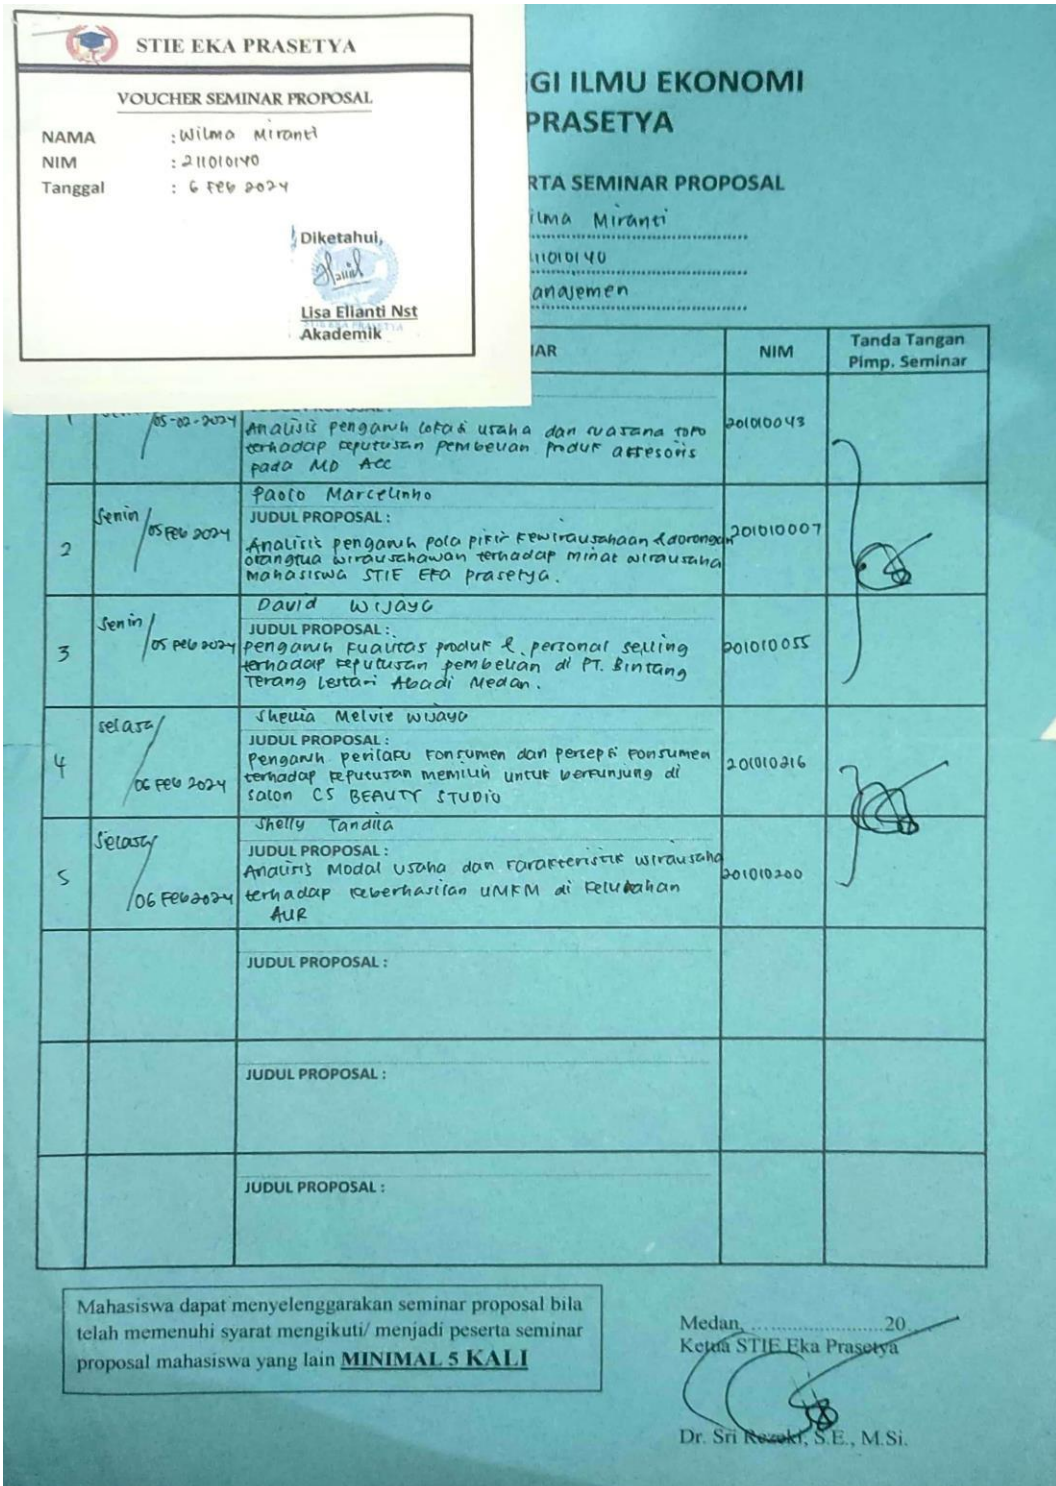 STIE EKA PRASETYA
VOUCHER SEMINAR PROPOSAL
NAMA : Wilma Miranti
NIM : 211010140
Tanggal : 6 Feb 2024
Diketahui,
Lisa Elianti Nst
Akademik
GI ILMU EKONOMI
PRASETYA
RTA SEMINAR PROPOSAL
ilma Miranti
11010140
anajemen
AR NIM Tanda Tangan
Pimp. Seminar
05-02-2024 Analisis pengaruh lokasi usaha dan suasana toko 201010043
terhadap keputusan pembelian produk aksesoris
pada MD ACC
Paolo Marcelinho
2 Senin/05 Feb 2024 JUDUL PROPOSAL : 201010007
Analisis pengaruh pola pikir kewirausahaan & dorongan
orangtua wirausahawan terhadap minat wirausaha
mahasiswa STIE EKA prasetya.
David Wijaya
3 Senin/05 Feb 2024 JUDUL PROPOSAL : 201010055
pengaruh kualitas produk & personal selling
terhadap keputusan pembelian di PT. Bintang
Terang Lestari Abadi Medan.
Melvie Wijaya
4 selasa/06 Feb 2024 JUDUL PROPOSAL : 201010216
pengaruh perilaku konsumen dan persepsi konsumen
terhadap keputusan memilih untuk berkunjung di
salon CS BEAUTY STUDIO
Shelly Tandila
5 Selasa/06 Feb 2024 JUDUL PROPOSAL : 201010200
Analisis Modal usaha dan karakteristik wirausaha
terhadap keberhasilan UMKM di Kelurahan
AUR
JUDUL PROPOSAL :
JUDUL PROPOSAL :
JUDUL PROPOSAL :
Mahasiswa dapat menyelenggarakan seminar proposal bila
telah memenuhi syarat mengikuti/ menjadi peserta seminar
proposal mahasiswa yang lain MINIMAL 5 KALI
Medan, ........................20
Ketua STIE Eka Prasetya
Dr. Sri Rezeki, S.E., M.Si.